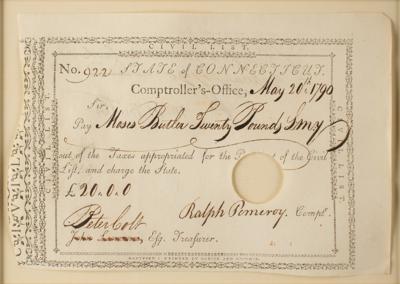 CIVIL LIST.
No. 922 STATE of CONNECTICUT.
Comptroller's-Office, May 20th 1790
Sir,
Pay Moses Butler Twenty Pounds, L.my
out of the Taxes appropriated for the P t of the Civil
List, and charge the State.
£20.0.0
Ralph Pomeroy. Compt.
Peter Colt
John Esq. Treasurer.
CIVIL LIST.